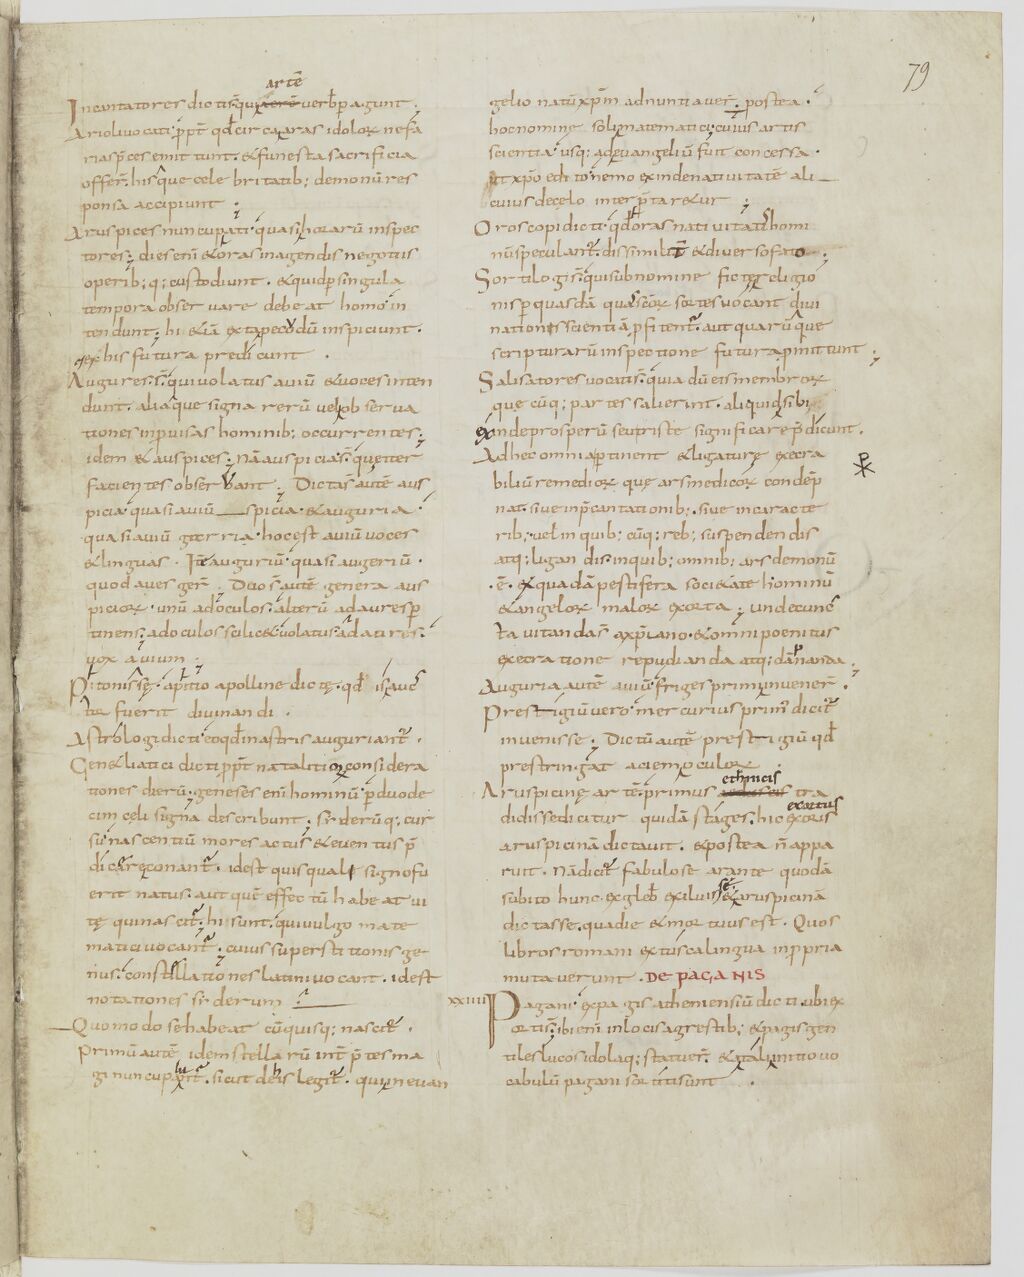 79
artē
Incantatores dicti s̄ qui aerē verb̄ peragunt.
Arioli vocati ꝓpt qđ circa aras idolorum nefa
rias p̄ces emittunt. & funesta sacrificia
offer̄. hisque celebritatib; demonū res
ponsa accipiunt
Aruspices nuncupati quasi horarū inspec
tores; dies enī & oras in agendis negotiis
operib;q; custodiunt. & quid ꝑ singula
tempora observare debeat homo in
tendunt; hi & iā exta pecodū inspiciunt.
& ex his futura predicunt.
Augures. s̄. qui volatus aviū & voces inten
dunt. aliaque signa rerū vel observa
tiones inprovisas hominib; occurrentes;
idem & auspices; nā auspicia s̄. que iter
facientes observant; Dicta s̄ autē aus
picia quasi aviū spicia & auguria
quasi aviū garria hoc est aviū voces
& linguas. Itē auguriū quasi avigeriū.
quod aves ger̄. Duo s̄ autē genera aus
piciorum. unū ad oculos. alterū ad aures ꝑ
tinens; ad oculos scilic& volatus. ad aures.
vox avium;
Pitonissę. a pitio apolline dictę. qđ is auc
tor fuerit divinandi.
Astrologi dicti eo qđ in astris auguriant̄.
Gen&liatici dicti ꝓpt natalitiorum considera
tiones dierū; geneses enī hominū ꝑ duode
cim celi signa describunt; siderūq; cur
su nascentiū mores actus & eventus p̄
dicare conant̄. id est quis quali signo fu
erit natus. aut quē effectū habeat vi
tę qui nascit̄; hi sunt. qui vulgo mate
matici vocant̄. cuius superstitionis ge
nus constellationes latini vocant. id est
notationes siderum
Quomodo se habeat cū quisq; nascit̄.
Primū autē idem stellarū int̄ p̄tes ma
gi nuncupabant̄. sicut de his legit̄. qui in evan
gelio natū xp̄m adnuntiaver̄; postea
hoc nomine soli matematici; cuius artis
scientia usq; ad evangeliū fuit concessa.
ut xp̄o edito nemo exinde nativitatē ali
cuius de cęlo interp̄tar&ur;
Oroscopi dicti qđ oras nativitatis homi
nū speculant̄. dissimili & diverso fato;
Sortilogi s̄. qui sub nomine fictę religio
nis ꝑ quasdā quas sc̄orum sortes vocant divi
nationis scientiā ꝓfitent̄. aut quarūque
scripturarū inspectione futura ꝓmittunt;
Salisatores vocati s̄. quia dū eis membrorum
quęcūq; partes salierint. aliquid sibi
exinde prosperū seu triste significare p̄dicunt.
Ad hec omnia ꝑtinent & ligaturę execra
biliū remediorum quę ars medicorum condēp
nat. sive in p̄cantationib;. sive in caracte
rib;. vel in quibuscūq; reb; suspendendis
atq; ligandis. in quib; omnib; ars demonū
.ē. ex quadā pestifera soci&ate hominū
& angelorum malorum exorta; unde cunc
ta vitanda s̄ a xp̄iano. & omni poenitus
execratione repudianda atq; dāpnanda;
Auguria autē aviū friges primi invener̄.
Prestigiū vero mercurius prim' dicit̄
invenisse; Dictū autē prestigiū qđ
prestringat aciem oculorum
ethruscis
Aruspicinę artē primus tra
exortus
didisse dicitur quidā stages. hic ex oris
aruspicinā dictavit. & postea n̄ appa
ruit. Nā dicit̄ fabulose arante quodā
subito hunc ex gleb̄ exiluisse & aruspicinā
dictasse. qua die & mortuus est. Quos
libros romani ex tusca lingua in ꝓpria
mutaverunt. DE PAGANIS
xxiiii Pagani ex pagis atheniensiū dicti. ubi ex
orti s̄. ibi enī in locis agrestib; & pagis gen
tiles lucos idolaq; statuer̄. & a tali initio vo
cabulū pagani sortiti sunt.